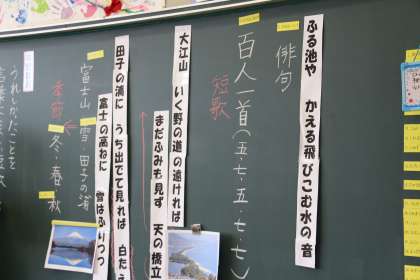 ふる池や かえる飛びこむ水の音
俳句
百人一首(五・七・五・七・七)
短歌
大江山 いく野の道の遠ければ
まだふみも見ず 天の橋立
田子の浦に うち出でて見れば 白たえ
富士の高ねに 雪はふりつつ
富士山 雪・田子の浦
季節
冬・春・秋
うれしかったことを